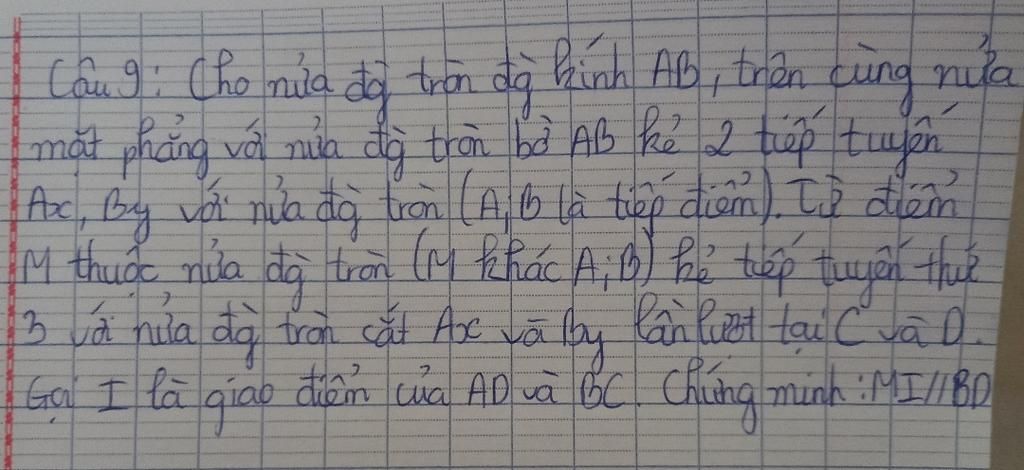 Câu 9: Cho nửa đg̀ tròn đg̀ kính AB, trên cùng nửa
mặt phẳng với nửa đg̀ tròn bờ AB kẻ 2 tiếp tuyến
Ax, By với nửa đg̀ tròn (A, B là tiếp điểm). Từ điểm
M thuộc nửa đg̀ tròn (M khác A; B) kẻ tiếp tuyến thứ
3 với nửa đg̀ tròn cắt Ax và By lần lượt tại C và D.
Gọi I là giao điểm của AD và BC. Chứng minh: MI//BD